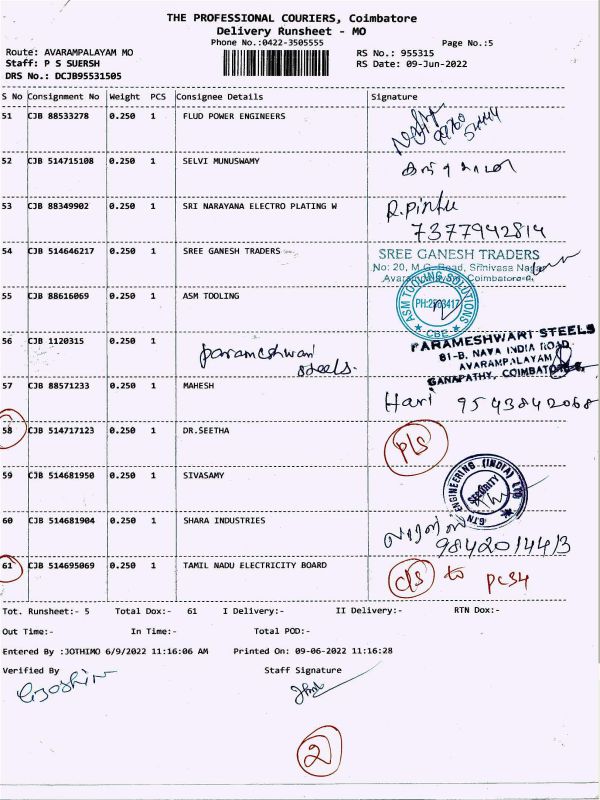 THE PROFESSIONAL COURIERS, Coimbatore
Delivery Runsheet - MO
Phone No.:0422-3505555
Page No.:5
Route: AVARAMPALAYAM MO
RS No.: 955315
Staff: P S SUERSH
RS Date: 09-Jun-2022
DRS No.: DCJB95531505
S No Consignment No Weight PCS Consignee Details Signature
51 CJB 88533278 0.250 1 FLUD POWER ENGINEERS
52 CJB 514715108 0.250 1 SELVI MUNUSWAMY
53 CJB 88349902 0.250 1 SRI NARAYANA ELECTRO PLATING W R.pintu
7377942814
54 CJB 514646217 0.250 1 SREE GANESH TRADERS SREE GANESH TRADERS
No: 20, M.G. Road, Srinivasa Nagar
Avarampalayam, Coimbatore-6.
55 CJB 88616069 0.250 1 ASM TOOLING ASM TOOLING SOLUTIONS
PH:2563417
CBE
56 CJB 1120315 0.250 1 parameshwari
steels.
PARAMESHWARI STEELS
81-B, NAVA INDIA ROAD
AVARAMPALAYAM
GANAPATHY, COIMBATORE-6.
57 CJB 88571233 0.250 1 MAHESH Hari 9543842068
58 CJB 514717123 0.250 1 DR.SEETHA P/S
59 CJB 514681950 0.250 1 SIVASAMY GTN ENGINEERING (INDIA) LTD
SECURITY
60 CJB 514681904 0.250 1 SHARA INDUSTRIES
9842014413
61 CJB 514695069 0.250 1 TAMIL NADU ELECTRICITY BOARD c/s to PCS4
Tot. Runsheet:- 5 Total Dox:- 61 I Delivery:- II Delivery:- RTN Dox:-
Out Time:- In Time:- Total POD:-
Entered By :JOTHIMO 6/9/2022 11:16:06 AM Printed On: 09-06-2022 11:16:28
Verified By Staff Signature
2